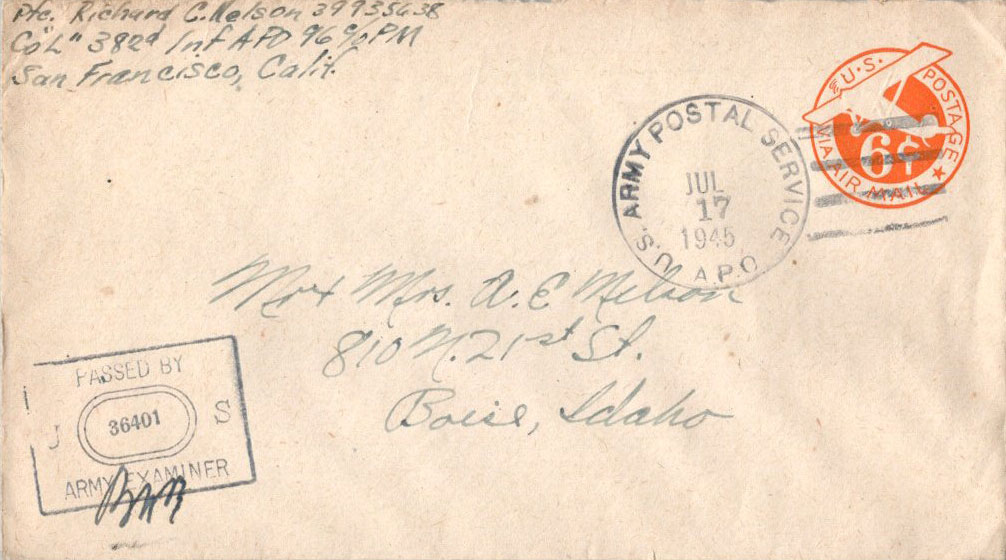 Pfc. Richard C. Nelson 39935638
Co "L" 382d Inf APO 96 c/o PM
San Francisco, Calif.
U.S. POSTAGE
6¢
VIA AIR MAIL
U.S. ARMY POSTAL SERVICE
JUL
17
1945
A.P.O.
Mr + Mrs. A. E Nelson
810 N. 21st St.
Boise, Idaho
PASSED BY
U 36401 S
ARMY EXAMINER